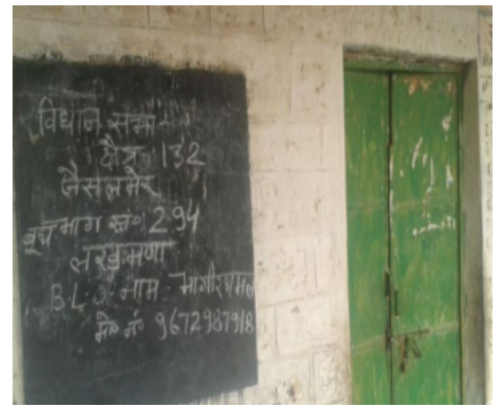 विधान सभा
क्षेत्र 132
जैसलमेर
बूथ भाग सं॰ 294
लखमणा
B.L.O. नाम - भागीरथमल
मो॰ नं॰ 9672987918